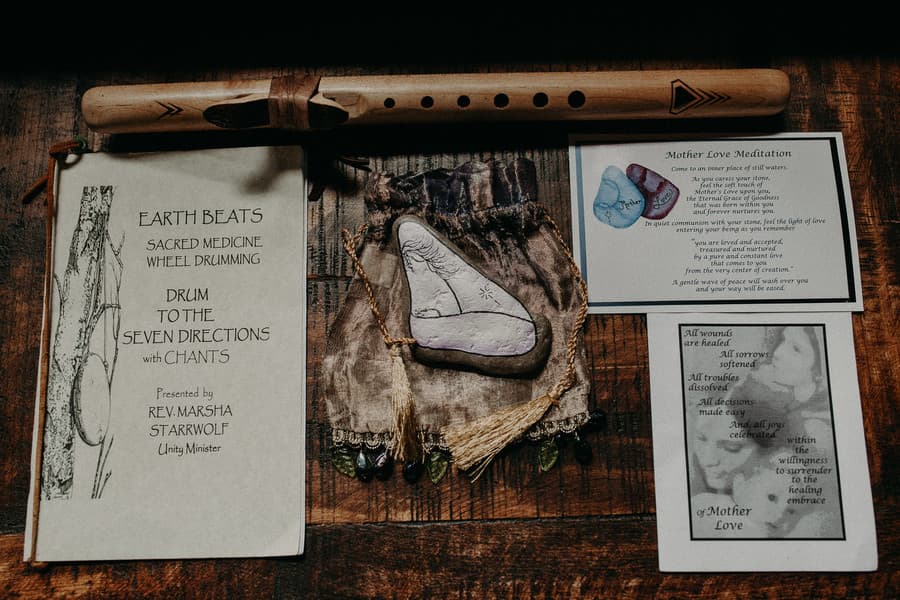 EARTH BEATS
SACRED MEDICINE
WHEEL DRUMMING
DRUM
TO THE
SEVEN DIRECTIONS
with CHANTS
Presented by
REV. MARSHA
STARRWOLF
Unity Minister
Mother Love Meditation
Come to an inner place of still waters.
As you caress your stone,
feel the soft touch of
Mother's Love upon you,
the Eternal Grace of Goodness
that was born within you
and forever nurtures you.
In quiet communion with your stone, feel the light of love
entering your being as you remember
"you are loved and accepted,
treasured and nurtured
by a pure and constant love
that comes to you
from the very center of creation."
A gentle wave of peace will wash over you
and your way will be eased.
Mother
Love
All wounds
are healed
All sorrows
softened
All troubles
dissolved
All decisions
made easy
And, all joys
celebrated
within
the
willingness
to surrender
to the
healing
embrace
of Mother
Love